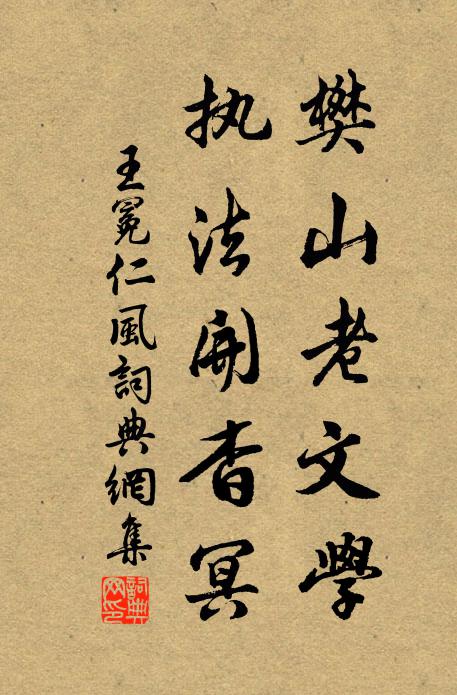 樊山老文學
执法開杳冥
王冕仁風詞典網集
詞典
网印